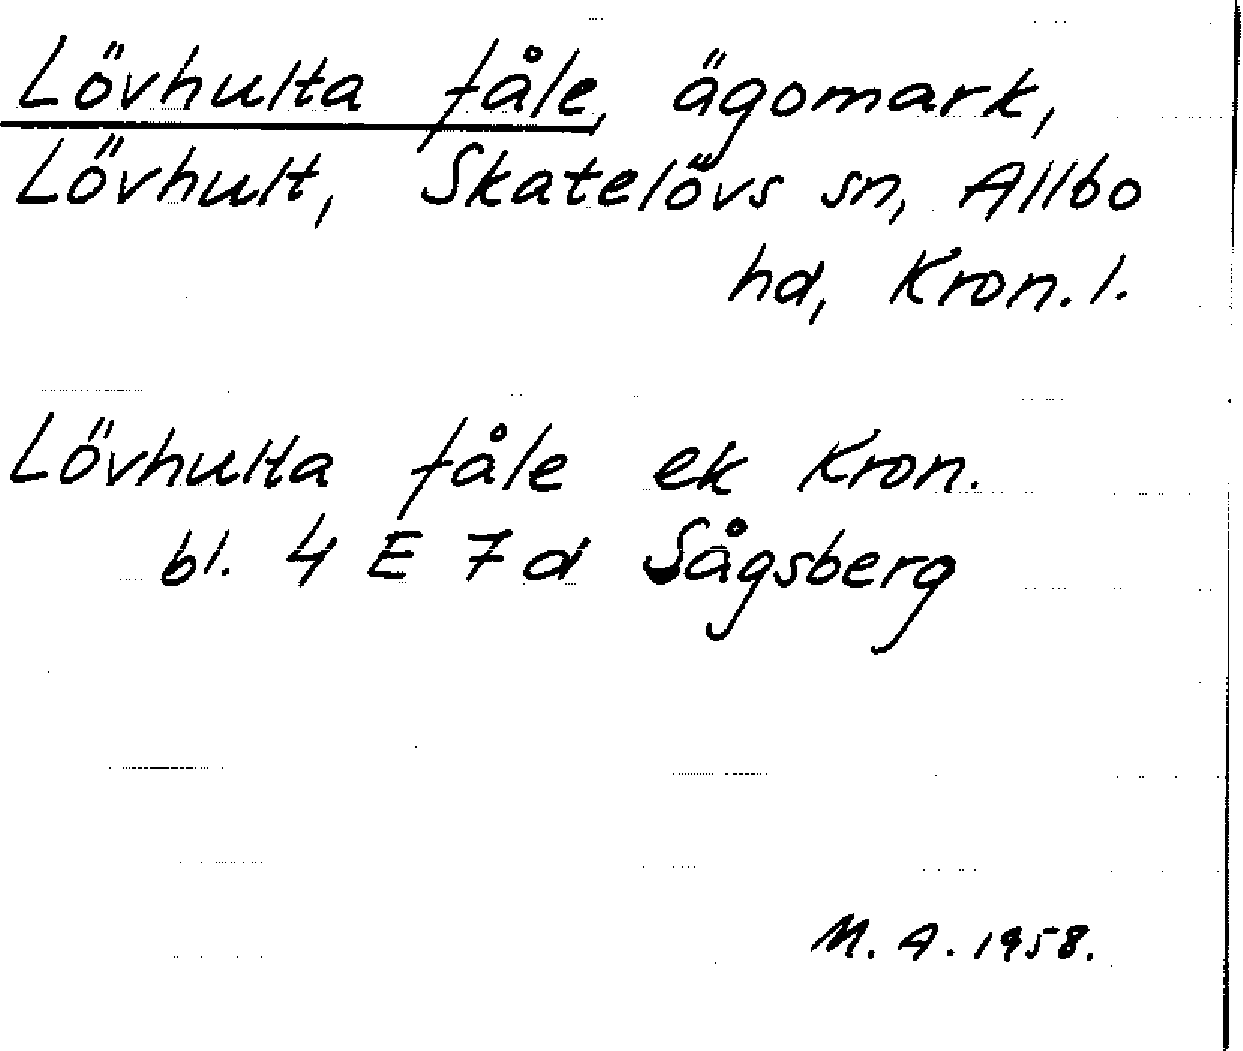 Lövhulta fåle, ägomark,
Lövhult, Skatelövs sn, Allbo
hd, Kron. l.
Lövhulta fåle ek Kron.
bl. 4 E 7d Sågsberg
M. A. 1958.